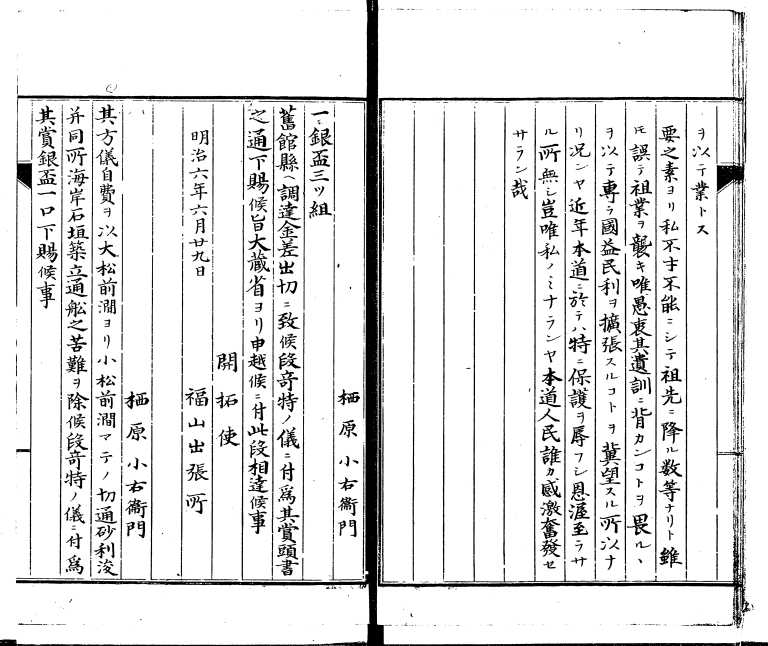 ヲ以テ業トス
要之素ヨリ私不才不能ニシテ祖先ニ降ル数等ナリト雖
モ誤テ祖業ヲ襲キ唯愚衷其遺訓ニ背カンコトヲ畏ル、
ヲ以テ専ラ國益民利ヲ擴張スルコトヲ冀望スル所以ナ
リ况ンヤ近年本道ニ於テハ特ニ保護ヲ辱フシ恩渥至ラサ
ル所無シ豈唯私ノミナランヤ本道人民誰カ感激奮發セ
サラン哉
栖原小右衞門
一銀盃三ツ組
舊館縣ヘ調達金差出切ニ致候段竒特ノ儀ニ付爲其賞頭書
之通下賜候旨大藏省ヨリ申越候ニ付此段相達候事
開拓使
明治六年六月廿九日 福山出張所
栖原小右衞門
其方儀自費ヲ以大松前澗ヨリ小松前澗マテノ切通砂利浚
并同所海岸石垣築立通舩之苦難ヲ除候段竒特ノ儀ニ付爲
其賞銀盃一口下賜候事